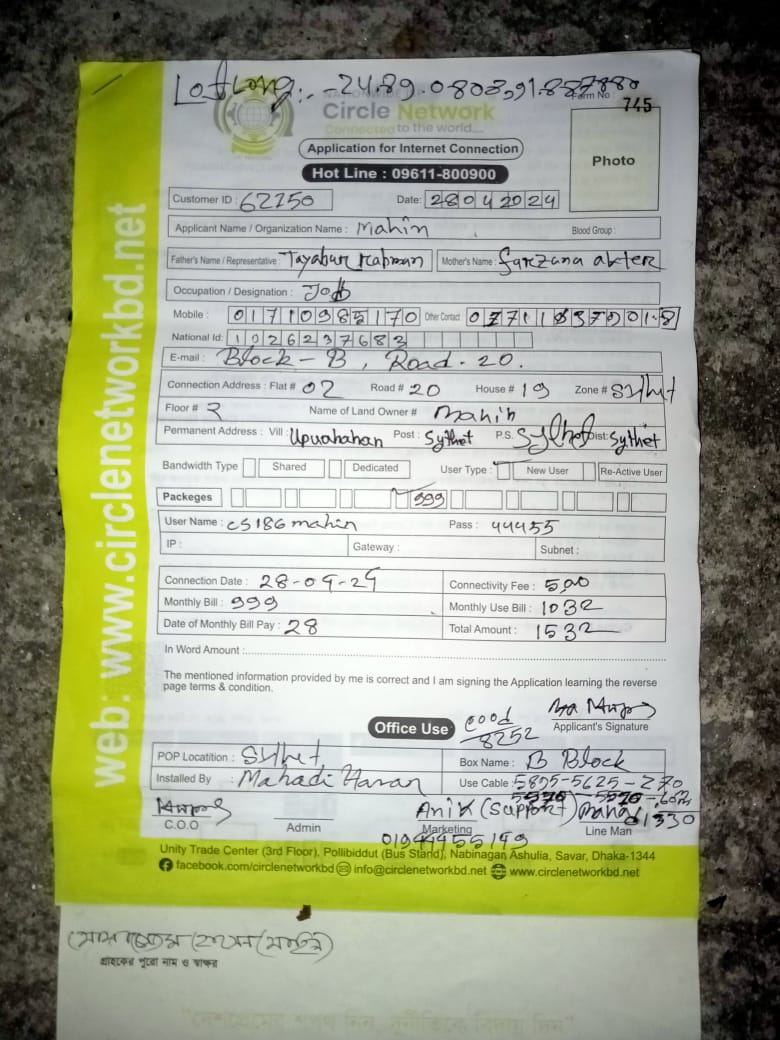 LatLong:-24.89.0803,91.887880
Form No
745
Circle Network
Connected to the world....
Application for Internet Connection
Hot Line : 09611-800900
Photo
Customer ID : 62250 Date: 28042024
Applicant Name / Organization Name : Mahin Blood Group :
Father's Name / Representative : Tayabur Rahman Mother's Name : Farzana akter
Occupation / Designation : Job
Mobile : 01710985170 Other Contact
National Id: 1026237683
E-mail : Block-B, Road-20.
Connection Address : Flat # 02 Road # 20 House # 19 Zone # Sylhet
Floor # 2 Name of Land Owner # Mahin
Permanent Address : Vill : Post : Sylhet P.S. Sylhet Dist: Sylhet
Bandwidth Type Shared Dedicated User Type : New User Re-Active User
Packeges 999
User Name : cs186mahin Pass : 44455
IP : Gateway : Subnet :
Connection Date : 28-04-24 Connectivity Fee : 500
Monthly Bill : 999 Monthly Use Bill : 1032
Date of Monthly Bill Pay : 28 Total Amount : 1532
In Word Amount :
The mentioned information provided by me is correct and I am signing the Application learning the reverse
page terms & condition.
Office Use
8252
Applicant's Signature
POP Locatition : Sylhet Box Name : B Block
Installed By : Mahadi Hasan Use Cable : 5895-5625-270
Anik (Support)
C.O.O Admin Marketing Line Man
01944455149
Unity Trade Center (3rd Floor), Pollibiddut (Bus Stand), Nabinagan Ashulia, Savar, Dhaka-1344
facebook.com/circlenetworkbd info@circlenetworkbd.net www.circlenetworkbd.net
web: www.circlenetworkbd.net
গ্রাহকের পুরো নাম ও স্বাক্ষর